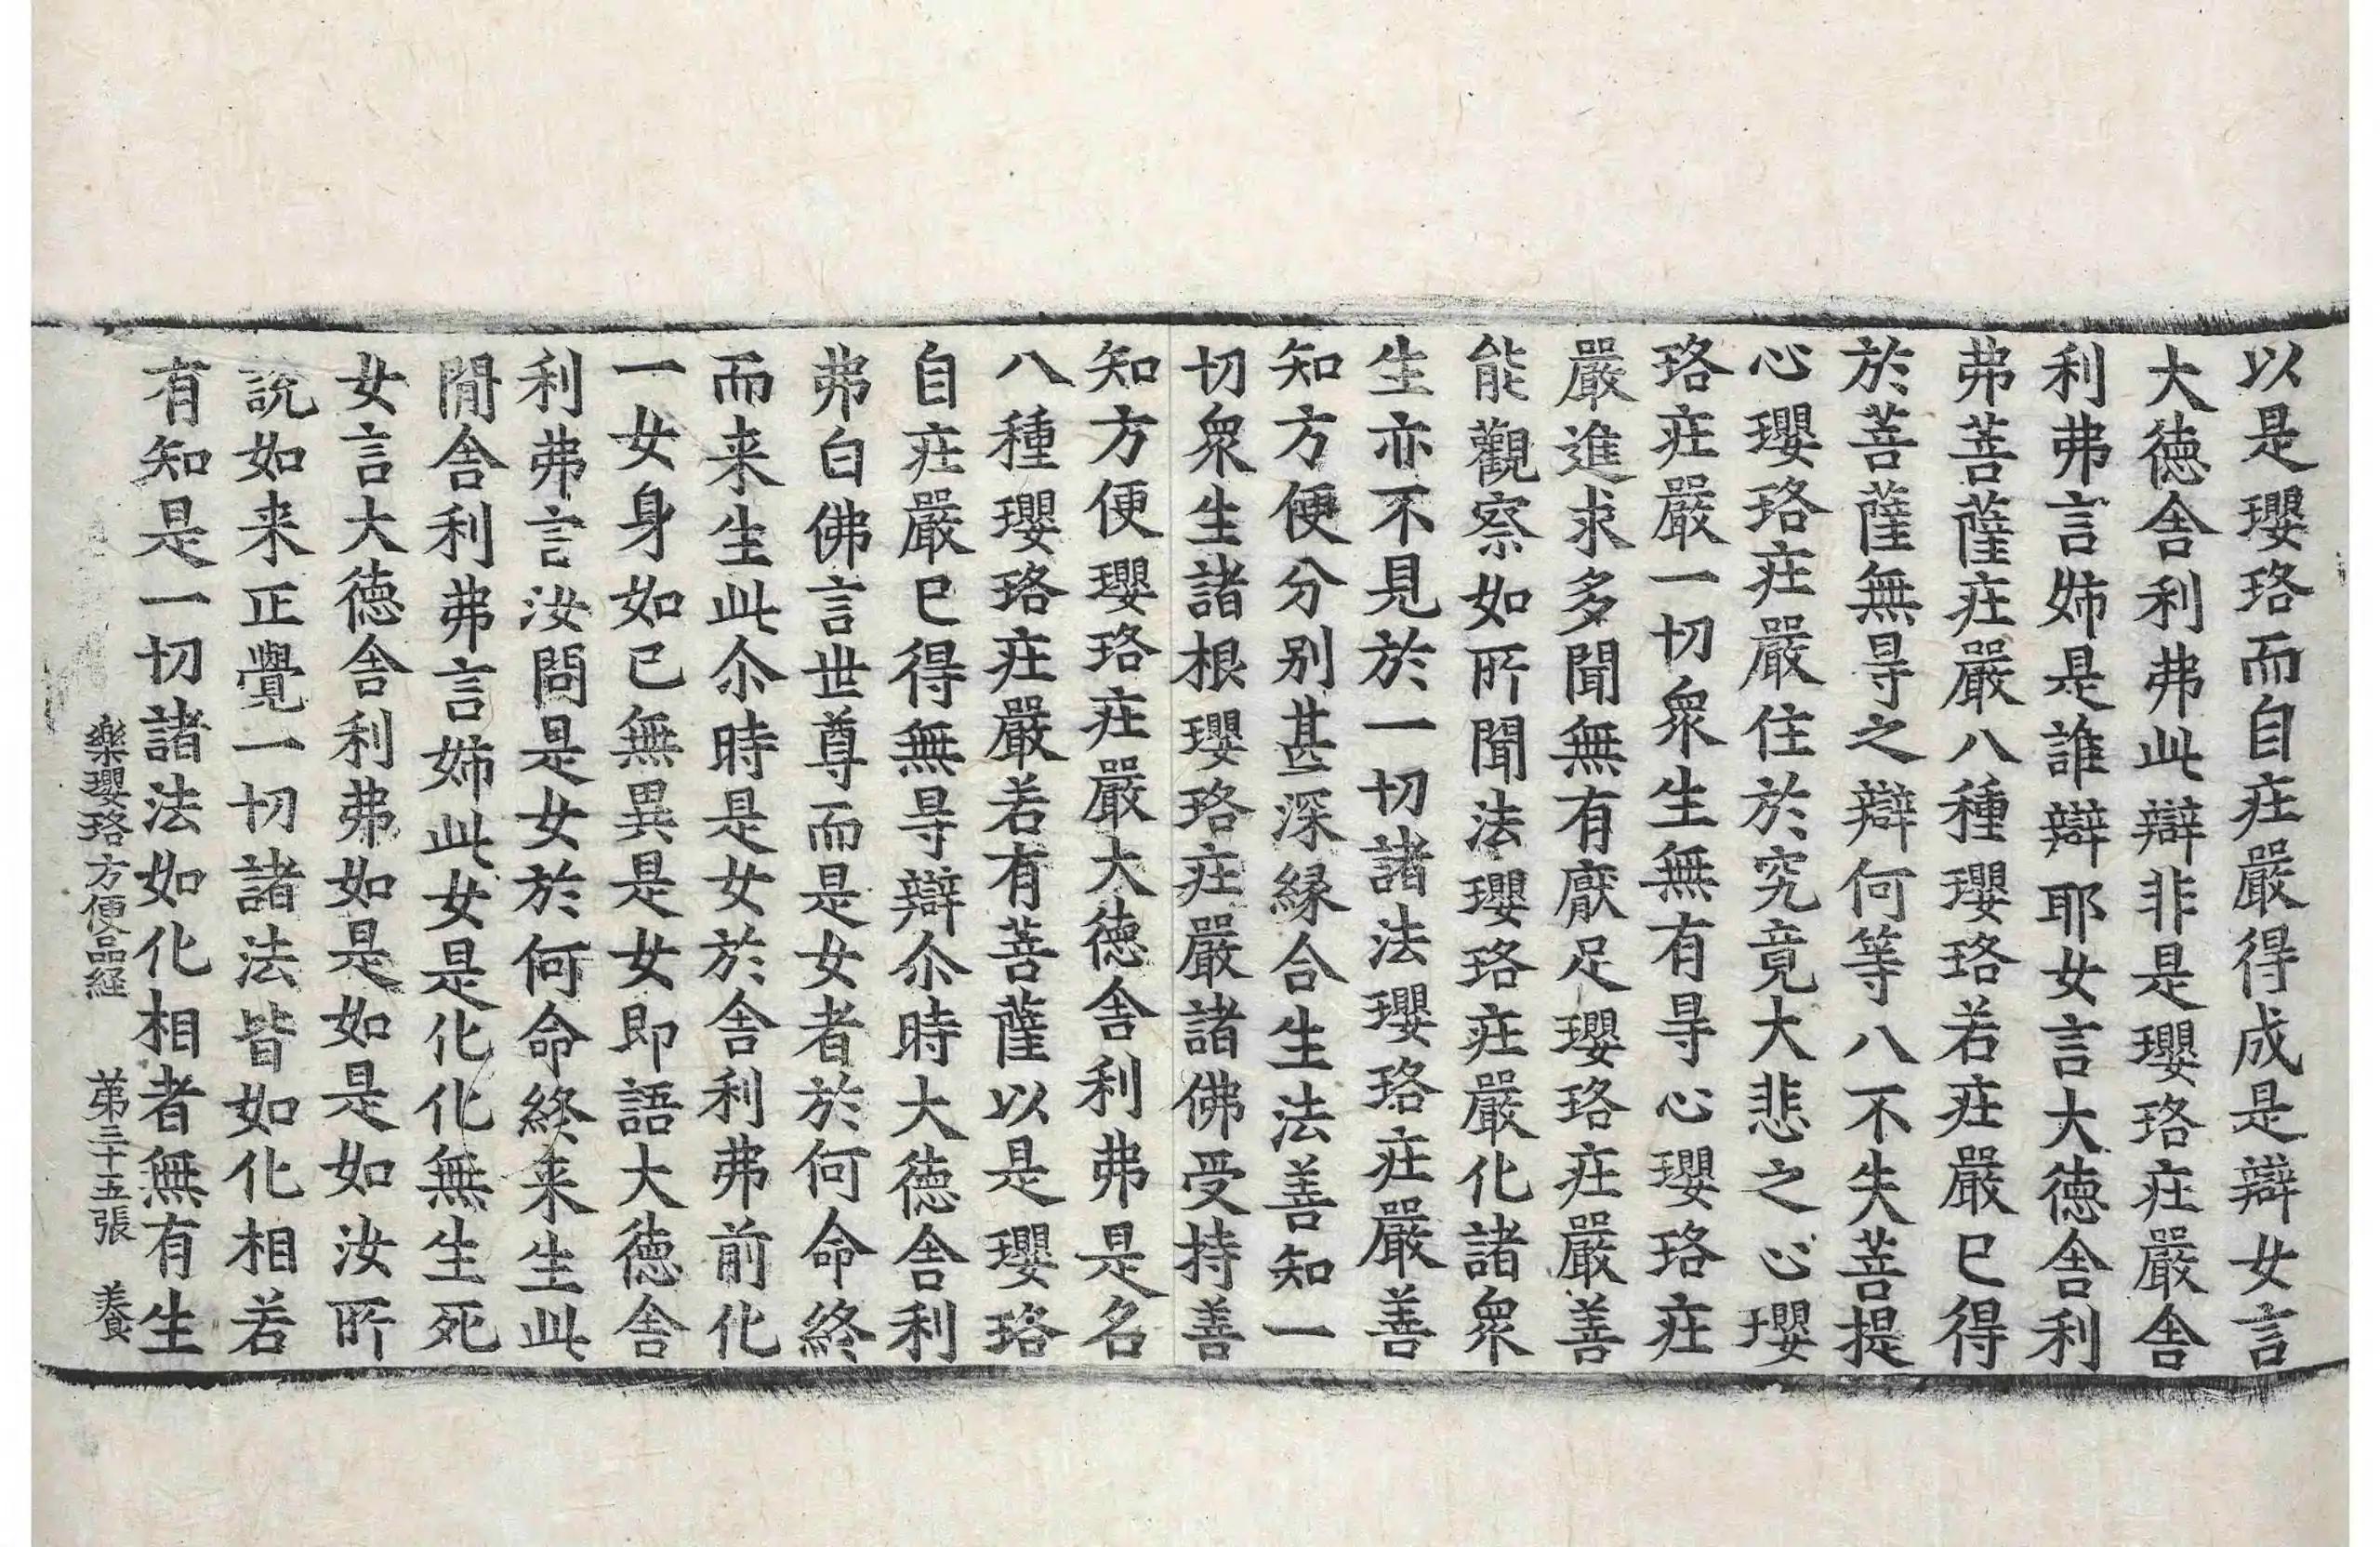 以是瓔珞而自庄嚴得成是辯女言
大徳舎利弗此辯非是瓔珞庄嚴舎
利弗言姊是誰辯耶女言大徳舎利
弗菩薩庄嚴八種瓔珞若庄嚴已得
於菩薩無㝵之辯何等八不失菩提
心瓔珞庄嚴住於究竟大悲之心瓔
珞庄嚴一切衆生無有㝵心瓔珞庄
嚴進求多聞無有厭足瓔珞庄嚴善
能觀察如所聞法瓔珞庄嚴化諸衆
生亦不見於一切諸法瓔珞庄嚴善
知方便分別甚深縁合生法善知一
切衆生諸根瓔珞庄嚴諸佛受持善
知方便瓔珞庄嚴大徳舎利弗是名
八種瓔珞庄嚴若有菩薩以是瓔珞
自庄嚴已得無㝵辯尒時大徳舎利
弗白佛言世尊而是女者於何命終
而来生此尒時是女於舎利弗前化
一女身如已無異是女即語大徳舎
利弗言汝問是女於何命終来生此
閒舎利弗言姊此女是化化無生死
女言大徳舎利弗如是如是如汝所
說如来正覺一切諸法皆如化相若
有知是一切諸法如化相者無有生
樂瓔珞方便品経 第三十五張 養